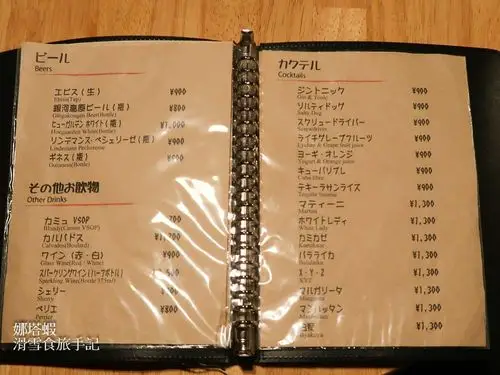 ビール
Beers
エビス(生)
¥900
Ebisu(Tap)
銀河高原ビール(瓶)
¥800
Gingakougen Beer(Bottle)
ヒューガルデン ホワイト(瓶)
¥1,000
Hoegaarden White(Bottle)
リンデマンス・ペシェリーゼ(瓶)
¥900
Lindemans Pecheresse
ギネス(瓶)
¥900
Guinness(Bottle)
その他お飲物
Other Drinks
カミュ VSOP
700
Blandy(Camus VSOP)
カルバドス
Calvados(Boulard)
ワイン(赤・白)
Glass Wine(Red / White)
スパークリングワイン(ハーフボトル)
Sparkling Wine(Bottle 375ml)
シェリー
Sherry
ペリエ
¥800
Perrier
カクテル
Cocktails
ジントニック
¥900
Gin & Tonic
ソルティドッグ
¥900
Salty Dog
スクリュードライバー
¥900
Screwdriver
ライチグレープフルーツ
¥900
Lychee & Grape fruit juice
ヨーギ・オレンジ
¥900
Yogurt & Orange juice
キューバリブレ
¥900
Cuba Libre
テキーラサンライズ
¥900
Tequila Sunrise
マティーニ
¥1,300
Martini
ホワイトレディ
¥1,300
White Lady
カミカゼ
¥1,300
Kamikaze
バラライカ
¥1,300
Balalaika
X・Y・Z
¥1,300
XYZ
マルガリータ
¥1,300
Margarita
マンハッタン
¥1,300
Manhattan
¥1,300
娜塔蝦
滑雪食旅手記